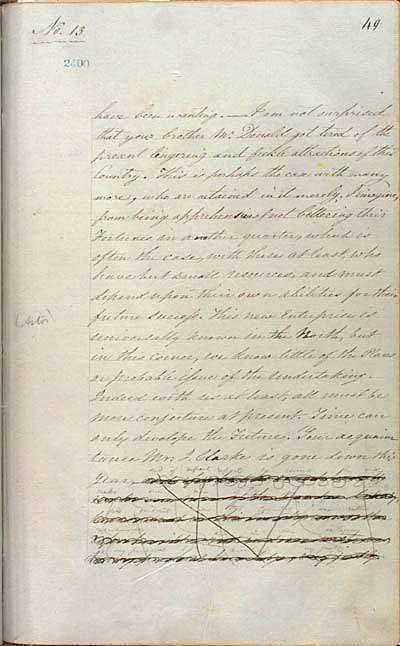 No. 13
49
2400
have been wanting. — I am not surprised
that your brother Mr. Donald got tired of the
present lingering and fickle attractions of this
Country. This is perhaps the case with many
more, who are retained in it merely, I imagine,
from being apprehensive of not bettering their
Fortunes in another quarter, which is
often the case, with those at least who
have but small resources, and must
depend upon their own abilities for their
future success. This new Enterprise is
(Astor)
universally known in the North, but
in this corner, we know little of the Plans
or probable issue of the Undertaking.
Indeed with us at least, all must be
mere conjecture at present. Time can
only develope the Future. Your acquain
tance Mr. J. Clarke is gone down this
Year,